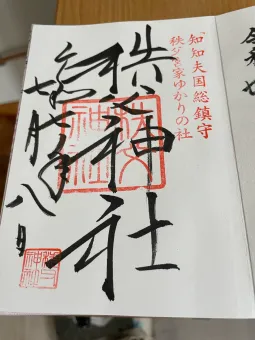 知知夫国総鎮守
秩父宮家ゆかりの社
秩父神社
秩父
神社
令和七年
七月八日
令和